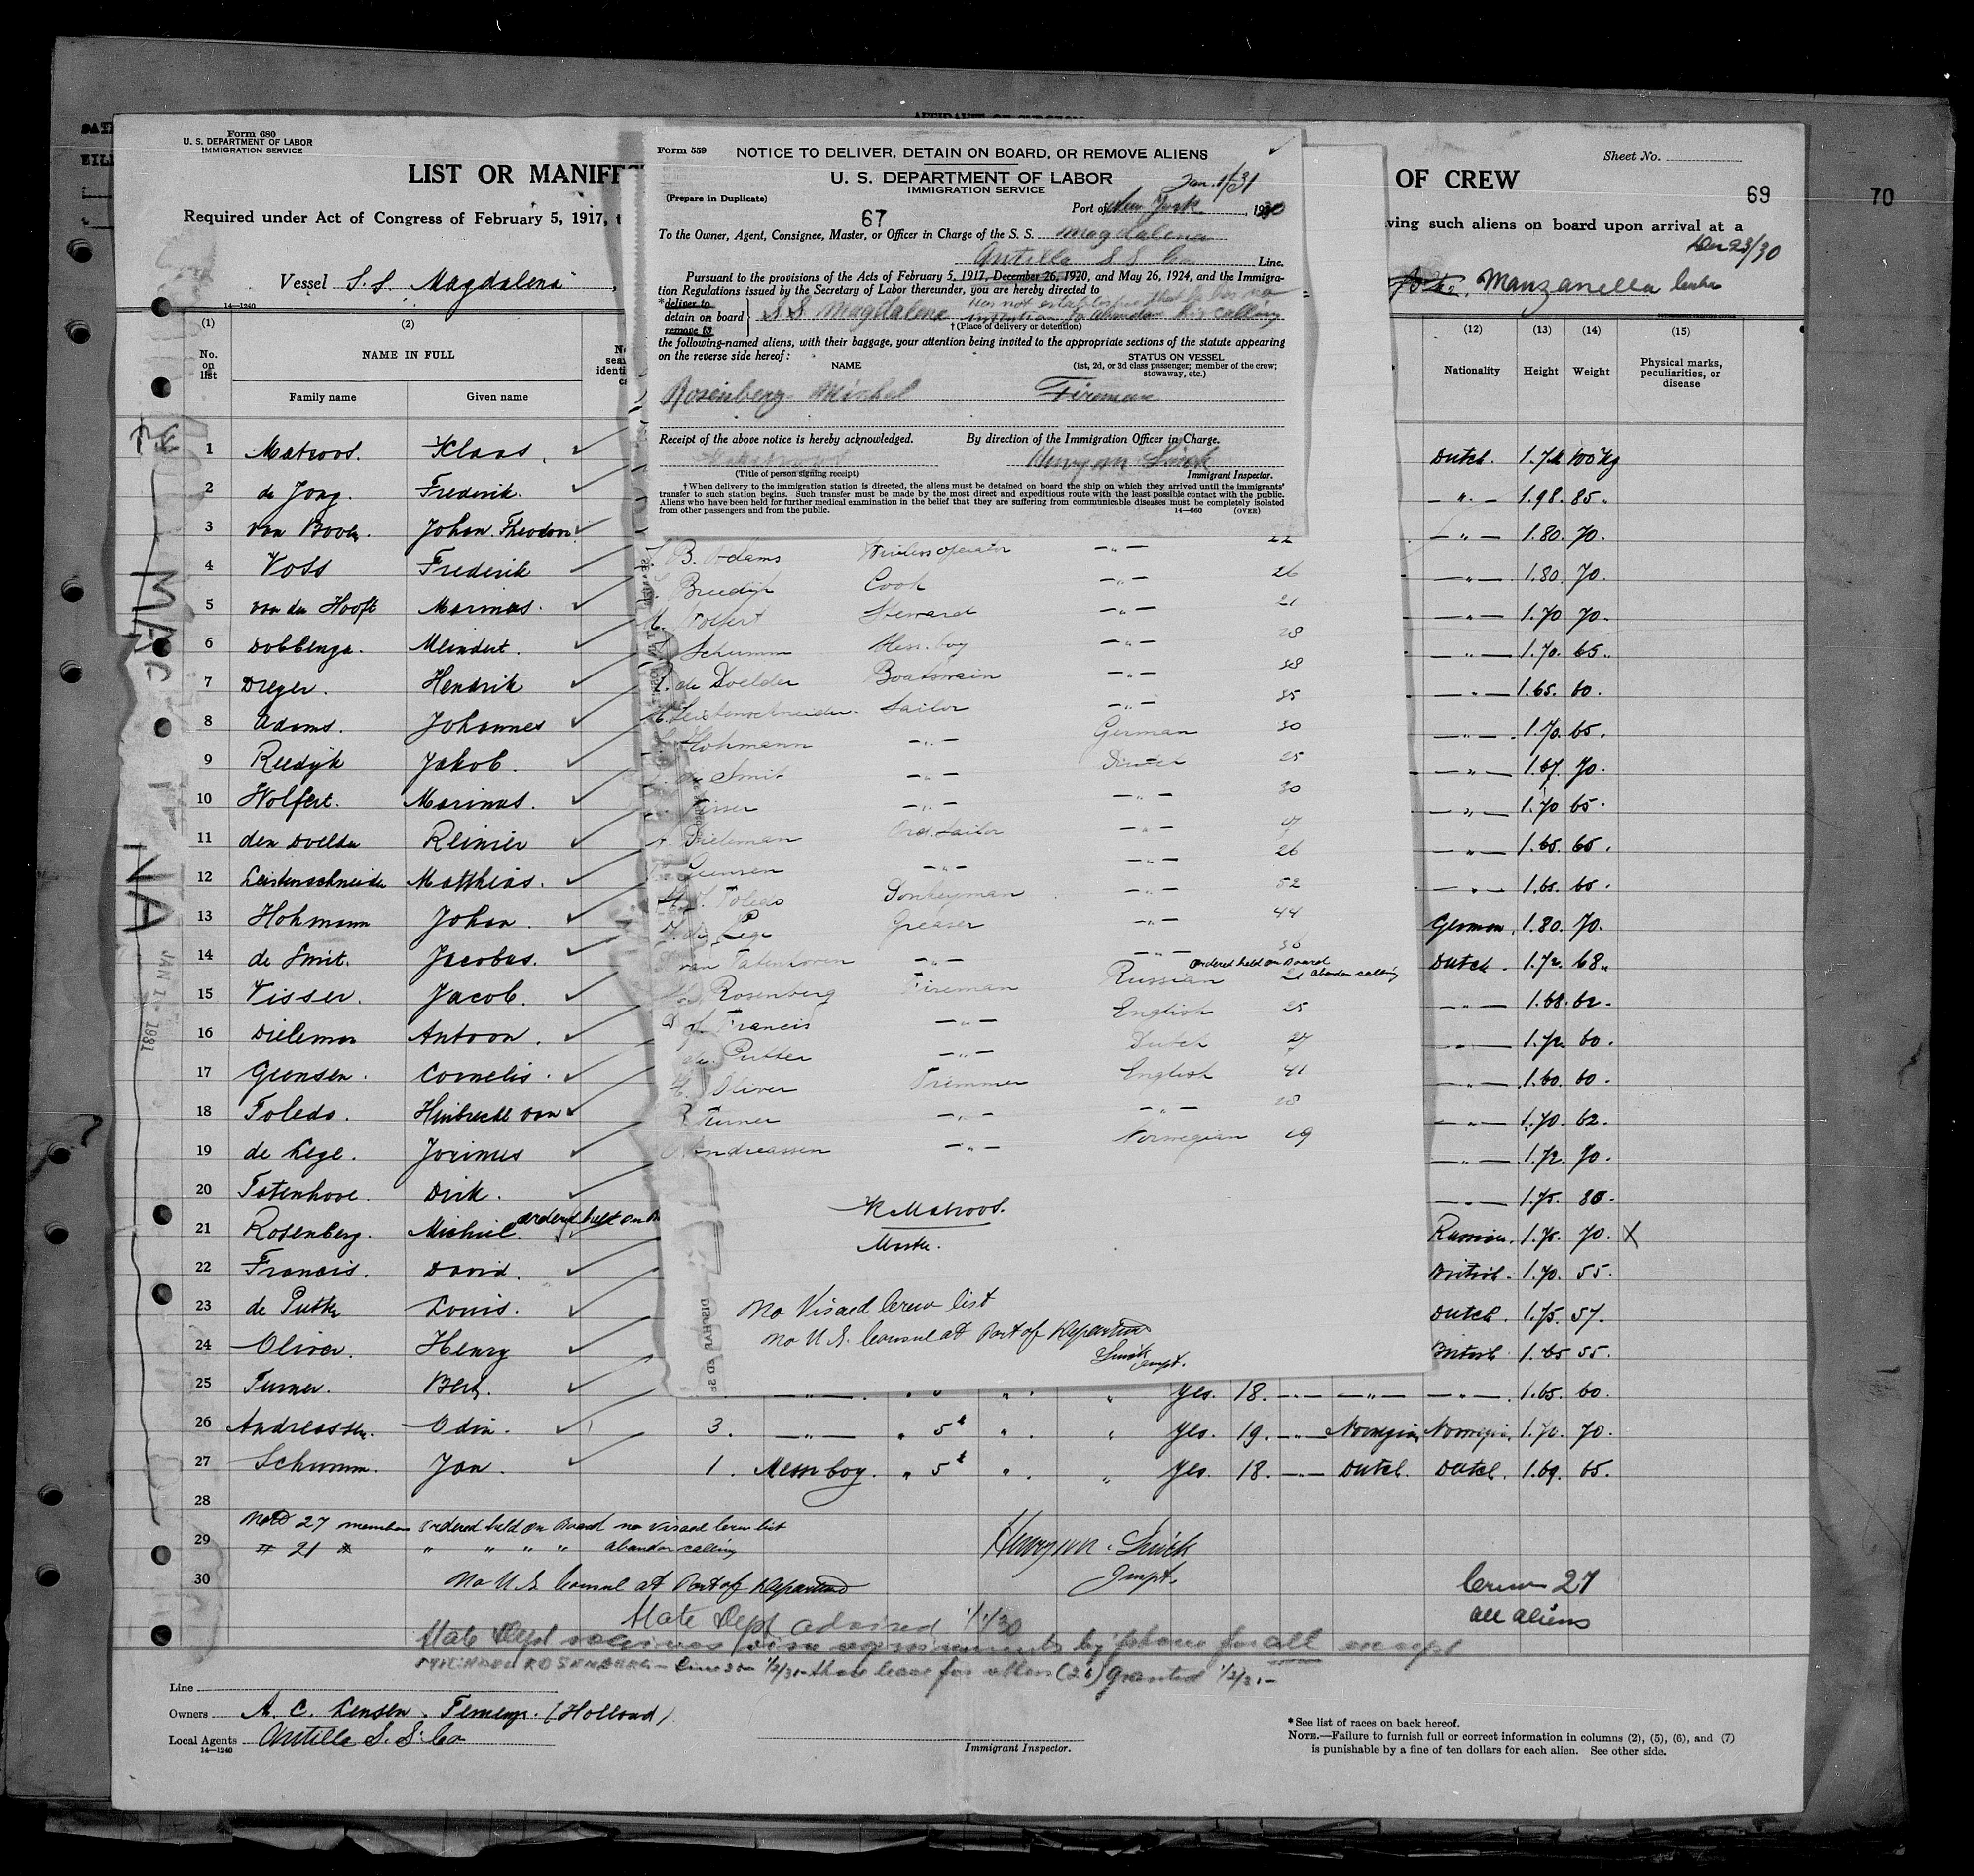 Form 680
U. S. DEPARTMENT OF LABOR
IMMIGRATION SERVICE
LIST OR MANIFES
OF CREW
Sheet No.
69
70
Required under Act of Congress of February 5, 1917, t
ving such aliens on board upon arrival at a
Dec 23/30
Vessel S.S. Magdalena
Manzanella Cuba
14—1240
Form 559
NOTICE TO DELIVER, DETAIN ON BOARD, OR REMOVE ALIENS
U. S. DEPARTMENT OF LABOR
IMMIGRATION SERVICE
Jan. 1/31
(Prepare in Duplicate)
67
Port of New York, 1930
To the Owner, Agent, Consignee, Master, or Officer in Charge of the S. S. Magdalena
Antilla S S Co Line.
Pursuant to the provisions of the Acts of February 5, 1917, December 26, 1920, and May 26, 1924, and the Immigra-
tion Regulations issued by the Secretary of Labor thereunder, you are hereby directed to
*deliver to
detain on board
remove to
S S Magdalena
Has not established that he has no
intention to abandon his calling
†(Place of delivery or detention)
the following-named aliens, with their baggage, your attention being invited to the appropriate sections of the statute appearing
on the reverse side hereof:
NAME
STATUS ON VESSEL
(1st, 2d, or 3d class passenger; member of the crew;
stowaway, etc.)
Rosenberg Michel Fireman
Receipt of the above notice is hereby acknowledged.
By direction of the Immigration Officer in Charge.
(Title of person signing receipt)
Henry M Smick
Immigrant Inspector.
†When delivery to the immigration station is directed, the aliens must be detained on board the ship on which they arrived until the immigrants'
transfer to such station begins. Such transfer must be made by the most direct and expeditious route with the least possible contact with the public.
Aliens who have been held for further medical examination in the belief that they are suffering from communicable diseases must be completely isolated
from other passengers and from the public.
14—660
(OVER)
B. Adams Wireless operator —"— 22
Reedijk Cook —"— 26
M. Wolfert Steward —"— 21
Schumm Mess-boy —"— 18
R. de Doelder Boatswain —"— 38
M. Leistenschneider Sailor —"— 35
Hohmann —"— German 30
de Smit —"— Dutch 25
Visser —"— —"— 30
A. Dieleman Ord. Sailor —"—
Geensen —"— —"— 26
H. V. Toledo Donkeyman —"— 52
J. de Lege Greaser —"— 44
D van Tatenhoven —"— —"— 36
ordered held on Board
abandon calling
Rosenberg Fireman Russian 21
D Francis —"— English 25
de Putter —"— Dutch 27
H. Oliver Trimmer English 41
B Turner —"— —"— 18
O Andreassen —"— Norwegian 19
K Matroos.
Master.
No Visaed Crew list
No U.S. Consul at Port of Departure
Smick
Inspt.
(1) (2) (12) (13) (14) (15)
No. on list
NAME IN FULL
Family name
Given name
Nationality
Height
Weight
Physical marks, peculiarities, or disease
1 Matroos. Klaas. Dutch. 1.74 100 kg
2 de Jong. Frederik. —"— 1.98. 85.
3 van Boven. Johan Theodoor —"— 1.80. 70.
4 Voss Frederik —"— 1.80. 70.
5 van der Hooft Marinus. —"— 1.70 70.
6 Dobbenga. Meindert. —"— 1.70. 65.
7 Dreger. Hendrik —"— 1.65. 60.
8 Adams. Johannes —"— 1.70. 65.
9 Reedijk Jakob. —"— 1.67. 70.
10 Wolfert. Marinus. —"— 1.70 65.
11 den Doelder Reinier —"— 1.65. 65.
12 Leistenschneider Matthias. —"— 1.65. 65.
13 Hohmann Johan. German. 1.80. 70.
14 de Smit. Jacobus. Dutch. 1.72. 68.
15 Visser. Jacob. —"— 1.68. 62.
16 Dieleman Antoon. —"— 1.72 60.
17 Geensen. Cornelis. —"— 1.60. 60.
18 Toledo. Huibrecht van —"— 1.70. 62.
19 de Lege. Jorinus —"— 1.72. 70.
20 Tatenhove. Dirk. —"— 1.75. 80.
21 Rosenberg. Michiel. ordered held on B Russian. 1.75. 70. X
22 Francis. David. British. 1.70. 55.
23 de Putter Louis. Dutch. 1.75. 57.
24 Oliver. Henry British 1.65 55.
25 Turner. Bert. —"— yes. 18. —"— —"— —"— 1.65. 60.
26 Andreassen. Odin. 3. —"— " 5 " " yes. 19. —"— Norwegian Norwegian. 1.70. 70.
27 Schumm. Jan. 1. Messboy. " 5 " " yes. 18. —"— Dutch. Dutch. 1.69. 65.
28
29
30
27 members ordered held on Board no visaed Crew list
# 21 " " " " abandon calling
No U.S. Consul at Port of Departure
Henry M. Smick
Inspt.
Crew 27
all aliens
State Dept advised 1/1/30
State Dept waives visa requirements by phone for all except
MICHAEL ROSENBERG — Line 1/2/31 — shore leave for others (26) granted 1/2/31 —
MAGDALENA
JAN 1 - 1931
Line
Owners A. C. Lensen. Terneuzen. (Holland)
Local Agents Antilla S. S. Co
14—1240
Immigrant Inspector.
*See list of races on back hereof.
NOTE.—Failure to furnish full or correct information in columns (2), (5), (6), and (7)
is punishable by a fine of ten dollars for each alien. See other side.